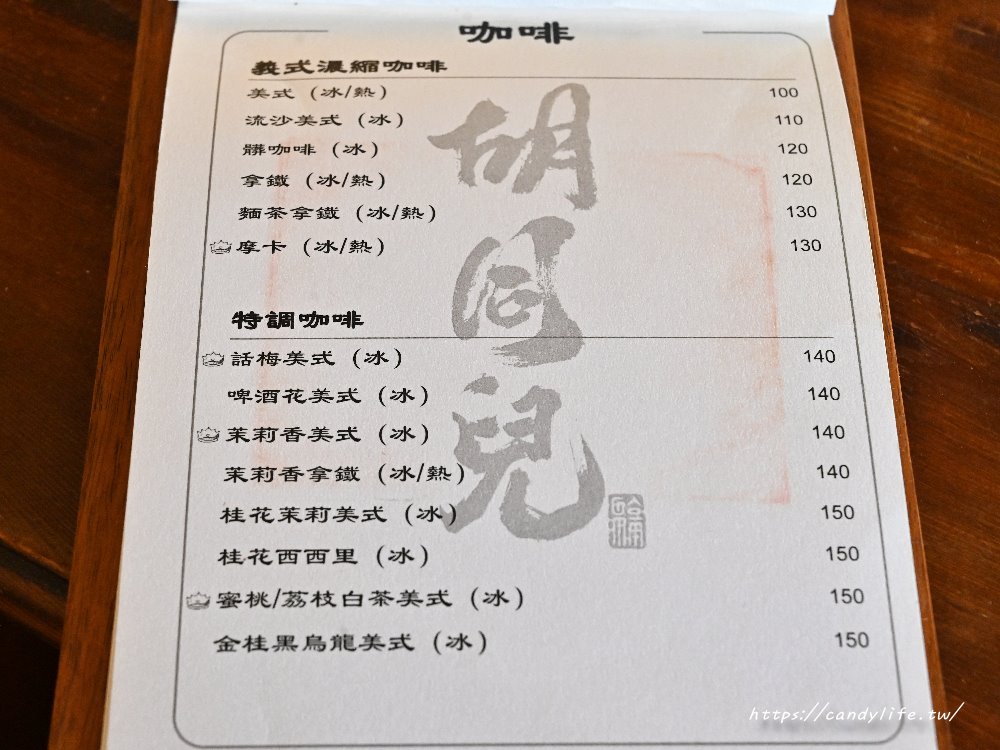 咖啡
義式濃縮咖啡
美式 (冰/熱) 100
流沙美式 (冰) 110
髒咖啡 (冰) 120
拿鐵 (冰/熱) 120
麵茶拿鐵 (冰/熱) 130
摩卡 (冰/熱) 130
胡同兒
特調咖啡
話梅美式 (冰) 140
啤酒花美式 (冰) 140
茉莉香美式 (冰) 140
茉莉香拿鐵 (冰/熱) 140
桂花茉莉美式 (冰) 150
桂花西西里 (冰) 150
蜜桃/荔枝白茶美式 (冰) 150
金桂黑烏龍美式 (冰) 150
https://candylife.tw/